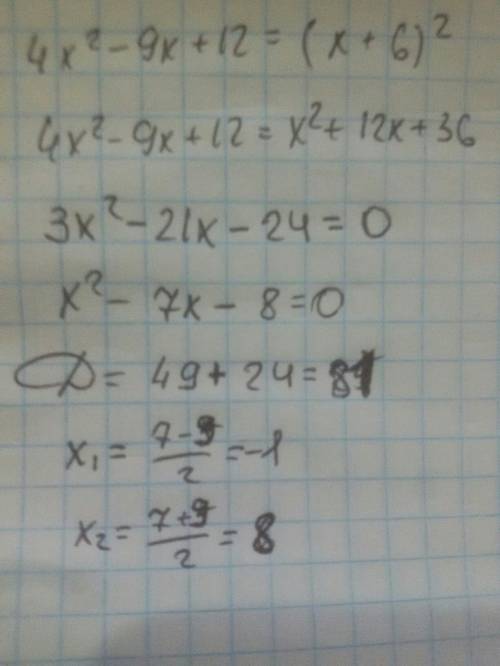 4x² - 9x + 12 = (x + 6)²
4x² - 9x + 12 = x² + 12x + 36
3x² - 21x - 24 = 0
x² - 7x - 8 = 0
D = 49 + 24 = 81
x₁ = (7 - 9)/2 = -1
x₂ = (7 + 9)/2 = 8